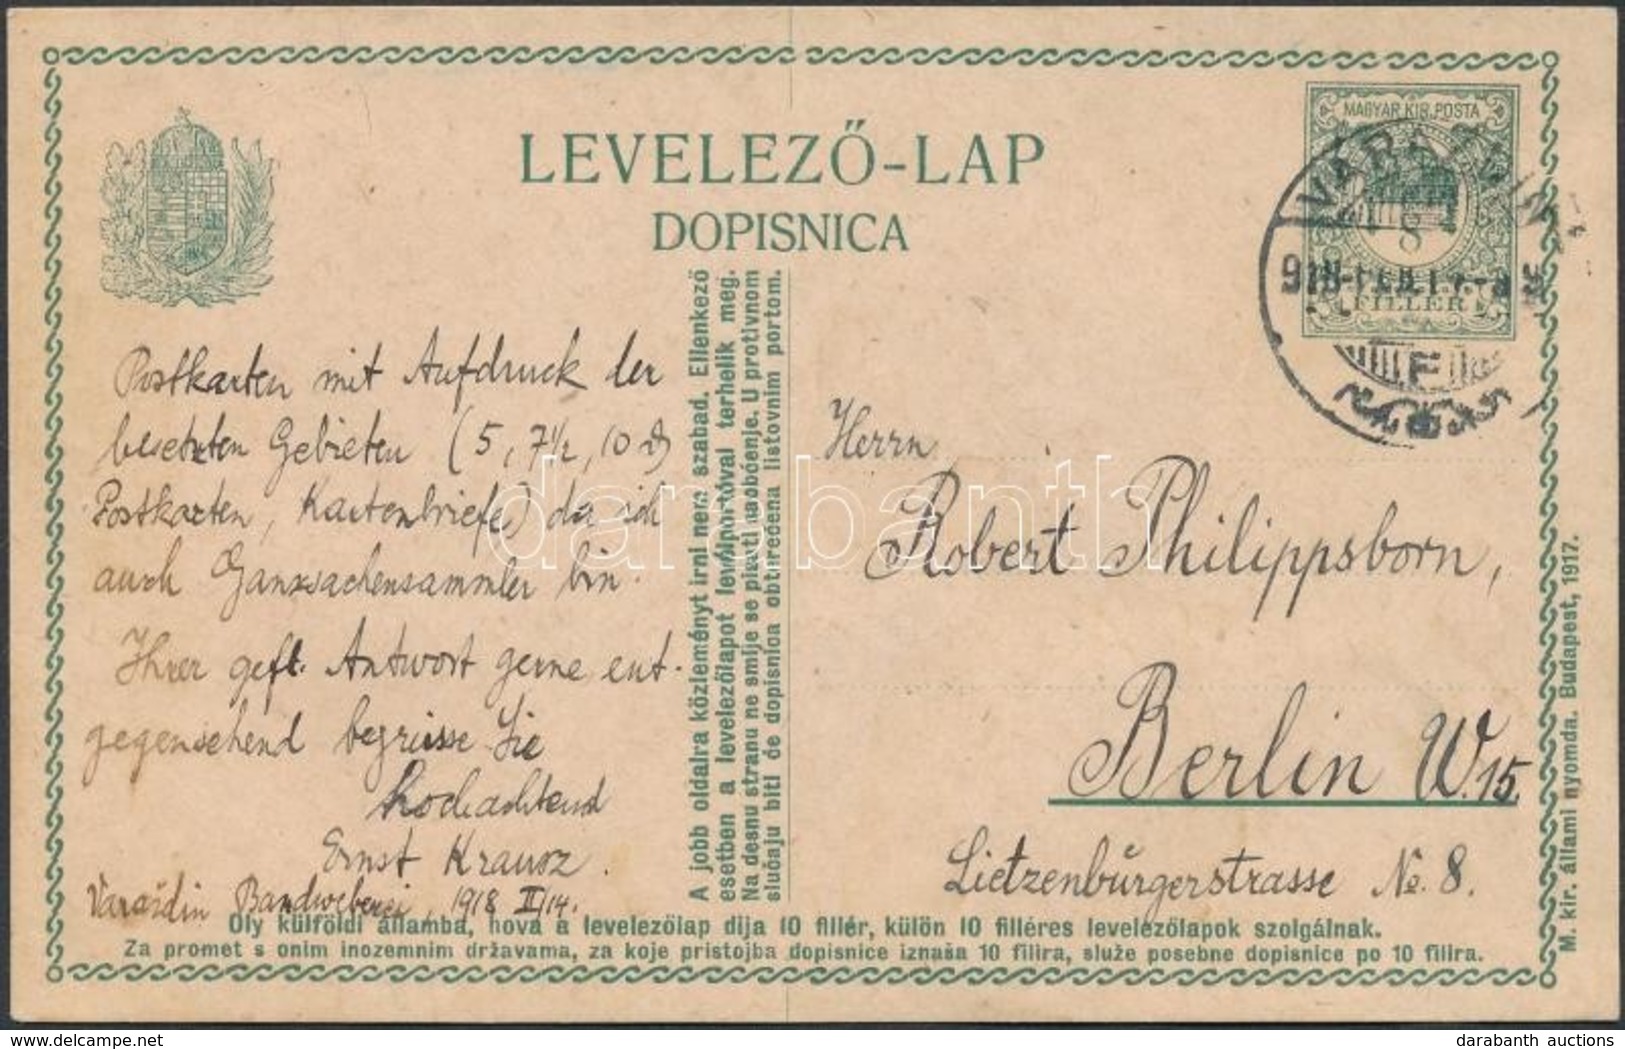 LEVELEZŐ-LAP
DOPISNICA
MAGYAR KIR. POSTA
8
FILLÉR
VARAŽDIN
F
Postkarten mit Aufdruck der
besetzten Gebieten (5, 7½, 10 ₰)
Postkarten, Kartenbriefe) da ich
auch Ganzsachensammler bin.
Ihrer gefl. Antwort gerne ent-
gegensehend begrüsse Sie
hochachtend
Ernst Krausz.
Varaždin Bandweberei, 1918 II/14.
A jobb oldalra közleményt irni nem szabad. Ellenkező
esetben a levelezőlapot levélportóval terhelik meg.
Na desnu stranu ne smije se pisati saobćenje. U protivnom
slučaju biti će dopisnica obterećena listovnim portom.
Herrn
Robert Philippsborn,
Berlin W.15
Lietzenburgerstrasse No. 8.
Oly külföldi államba, hova a levelezőlap dija 10 fillér, külön 10 filléres levelezőlapok szolgálnak.
Za promet s onim inozemnim državama, za koje pristojba dopisnice iznaša 10 filira, služe posebne dopisnice po 10 filira.
M. kir. állami nyomda. Budapest, 1917.
darabanth
delcampe.net
darabanth auctions